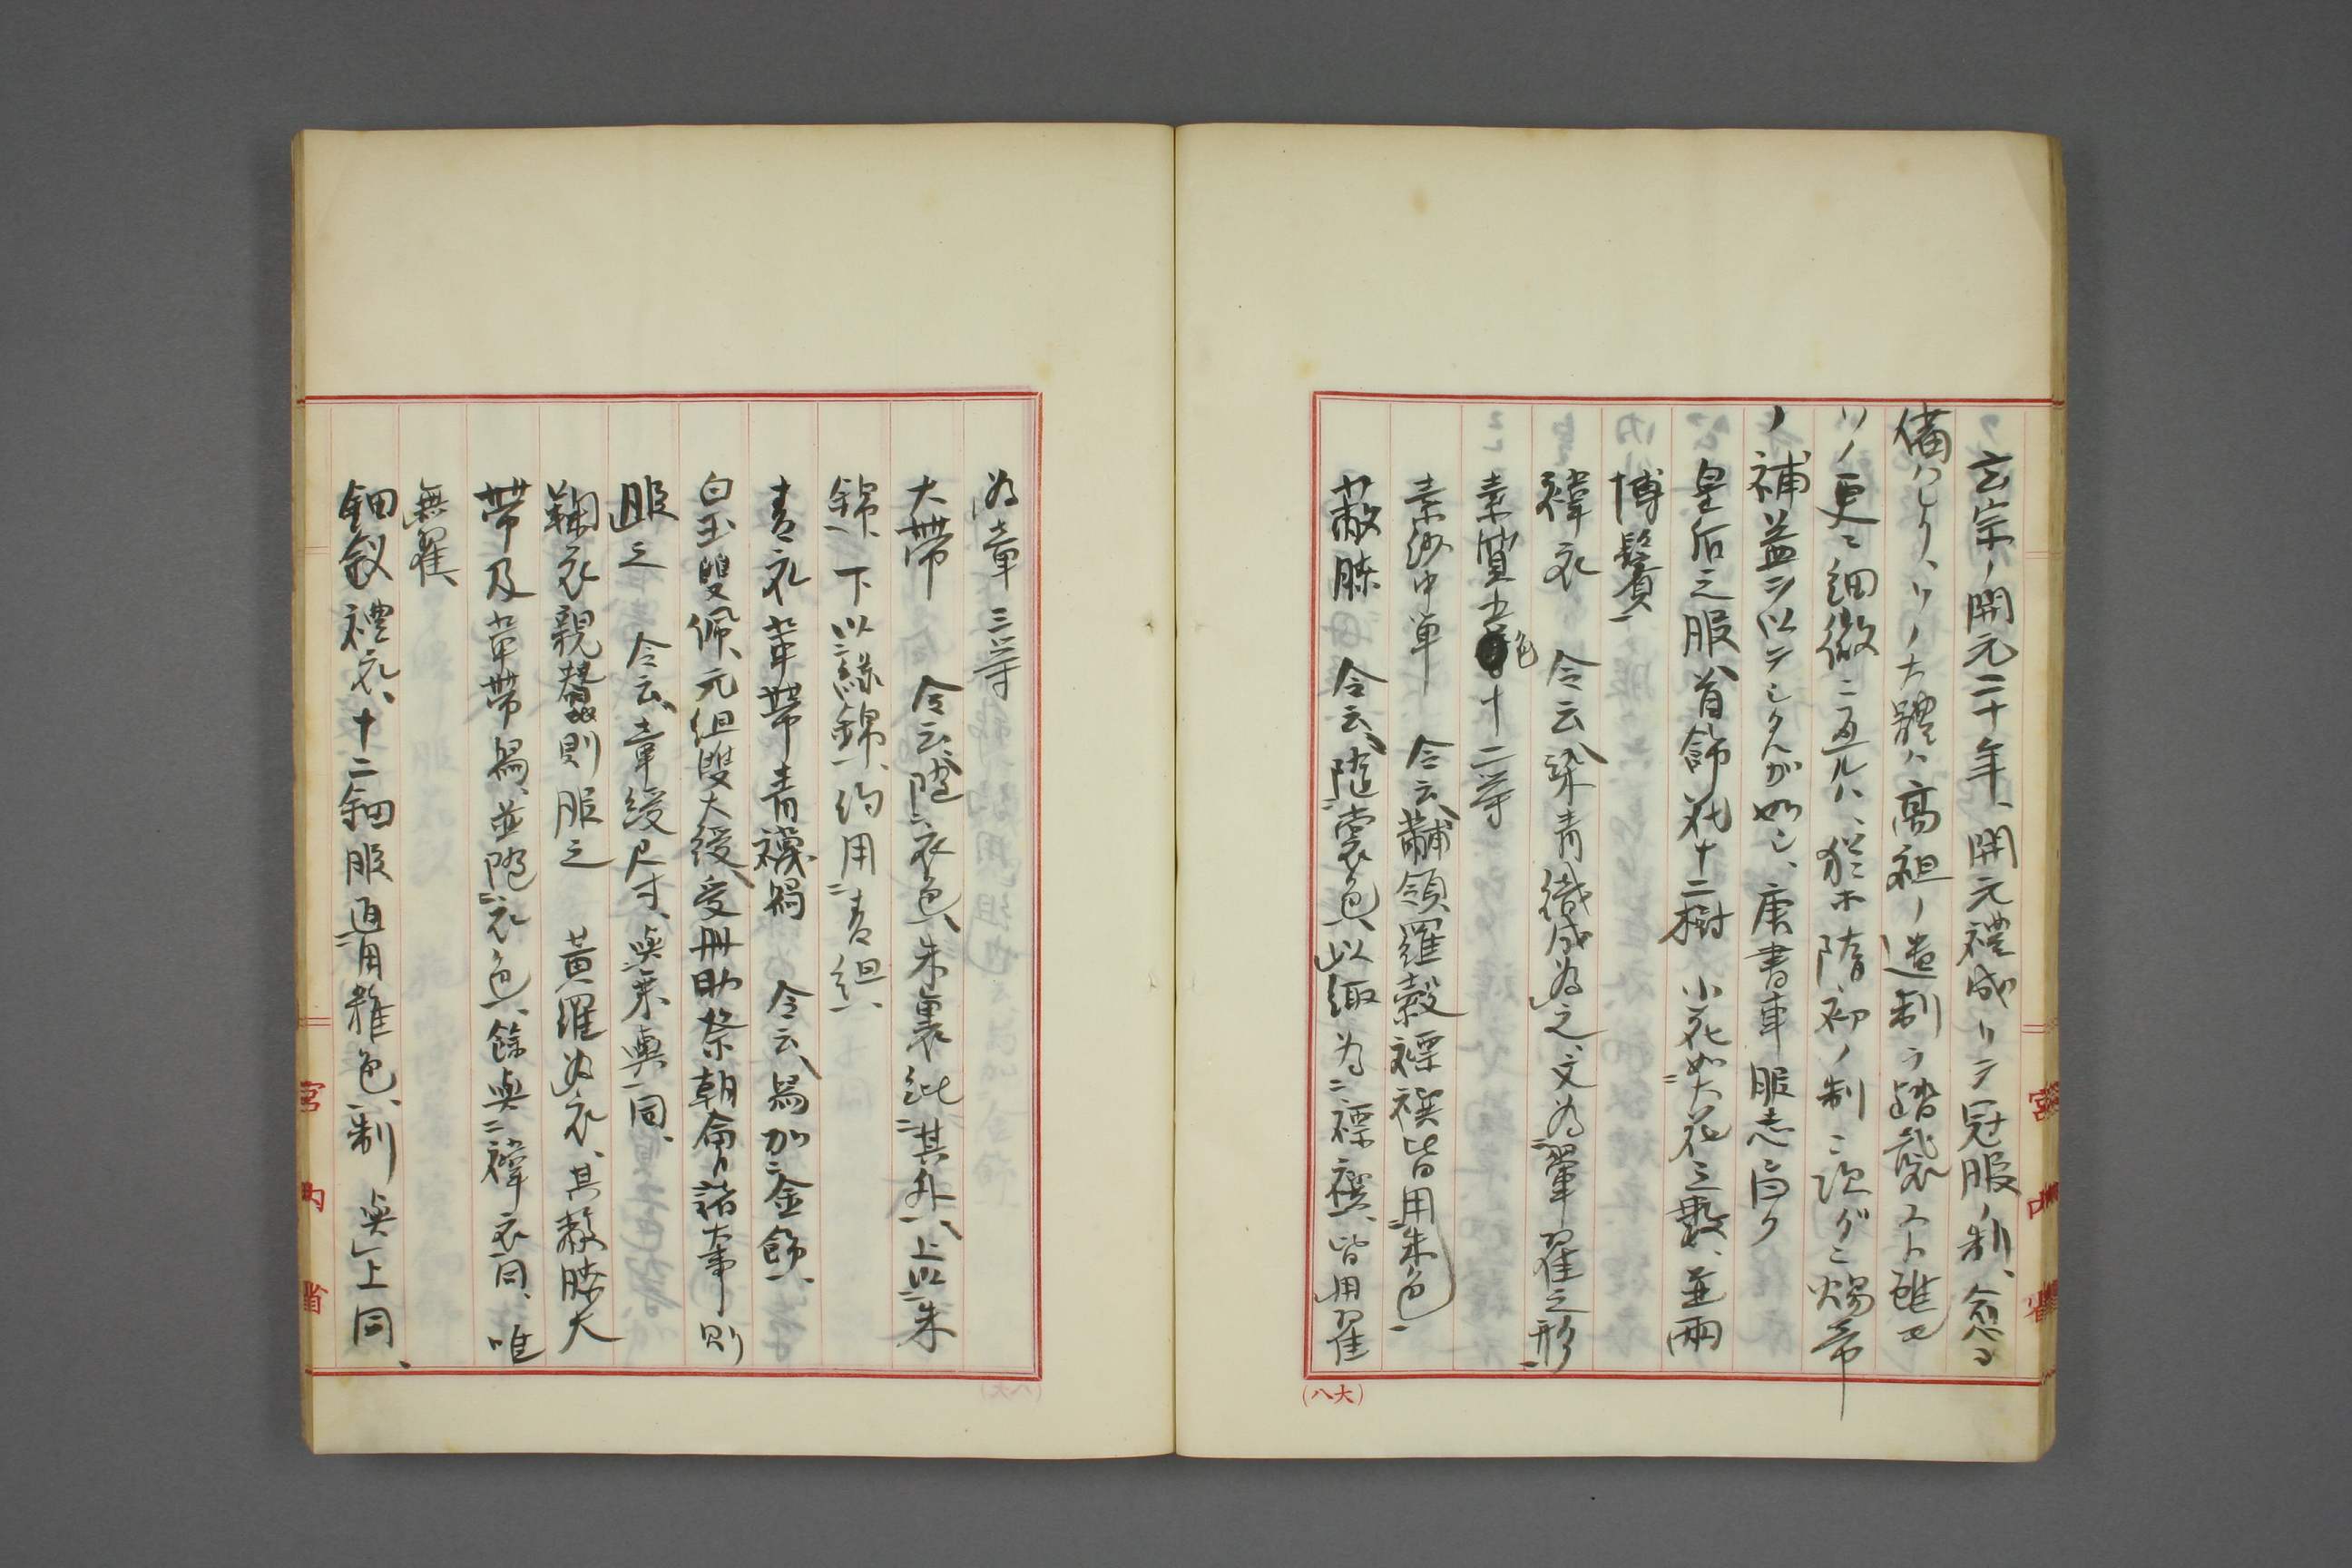 玄宗ノ開元二十年、開元禮成リテ冠服ノ制、愈ヨ
備ハレリ、ソノ大體ハ高祖ノ造制ヲ踏襲スト雖モ
ソノ更ニ細微ニ亙ルハ、猶ホ隋初ノ制ニ次グニ煬帝
ノ補益ヲ以テシタルガ如シ、唐書車服志ニ曰ク
皇后之服首飾花十二樹 小花如大花之數、並兩
博鬢
褘衣 令云染青織成為之、文為翬翟之形
素質五色十二等
素紗中単 令云、黼領羅縠褾襈皆用朱色
蔽膝 令云、隨裳色、以緅為褾襈、皆用翟
為章三等
大帶 令云、隨衣色、朱裏紕其外、上以朱
錦、下以緑錦、紐約用青組、
青衣革帶青襪舄 令云、舄加金飾、
白玉雙佩、元組雙大綬、受冊助祭朝會諸大事則
服之 令云、章綬尺寸、與乗輿同、
鞠衣親蠶則服之 黄羅為衣、其蔽膝大
帶及革帶舄、並隨衣色、餘與褘衣同、唯
無翟
鈿釵禮衣、十二鈿服通用雜色、制與上同、
宮内省
宮内省
(大八)